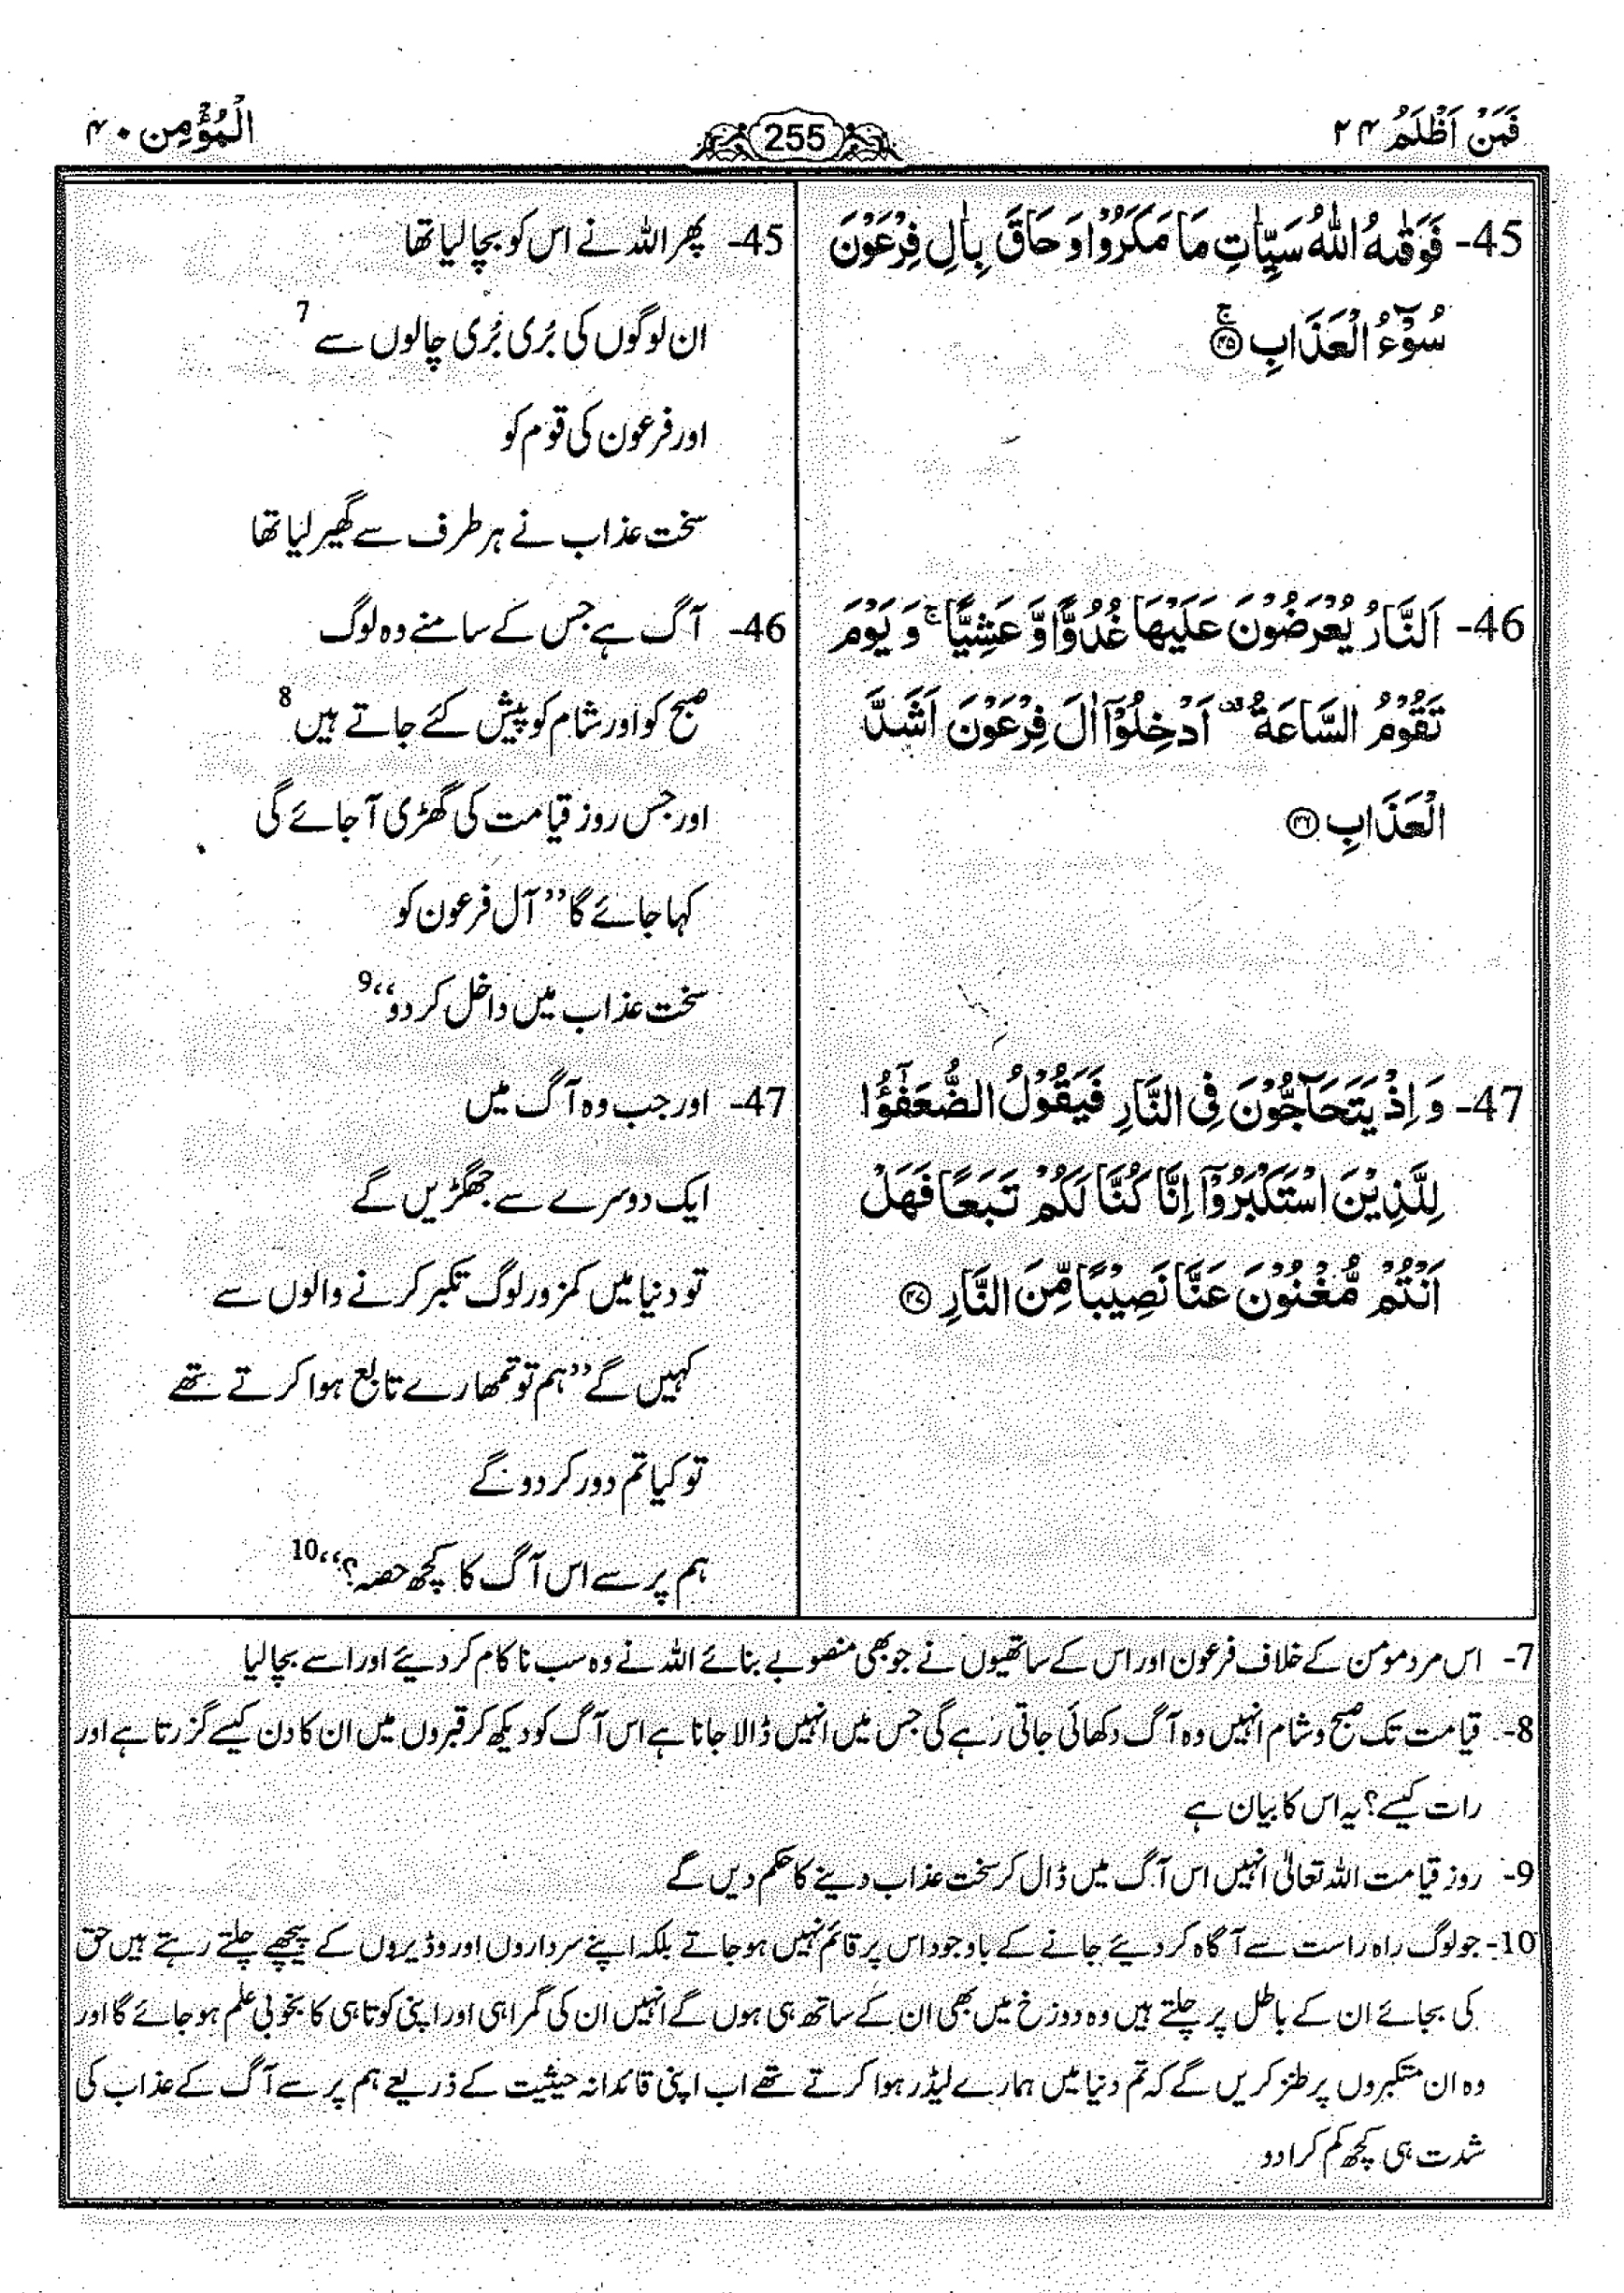 فَمَنْ اَظْلَمُ ۲۴
255
الْمُؤْمِن ۴۰
45- فَوَقٰىهُ اللّٰهُ سَيِّاٰتِ مَا مَكَرُوْا وَ حَاقَ بِاٰلِ فِرْعَوْنَ
سُوْٓءُ الْعَذَابِ ۚ‏﴿۴۵﴾
46- اَلنَّارُ يُعْرَضُوْنَ عَلَيْهَا غُدُوًّا وَّ عَشِيًّا ۚ وَ يَوْمَ
تَقُوْمُ السَّاعَةُ ۟ اَدْخِلُوْٓا اٰلَ فِرْعَوْنَ اَشَدَّ
الْعَذَابِ ﴿۴۶﴾
47- وَ اِذْ يَتَحَآجُّوْنَ فِى النَّارِ فَيَقُوْلُ الضُّعَفٰٓؤُا
لِلَّذِيْنَ اسْتَكْبَرُوْٓا اِنَّا كُنَّا لَكُمْ تَبَعًا فَهَلْ
اَنْتُمْ مُّغْنُوْنَ عَنَّا نَصِيْبًا مِّنَ النَّارِ ﴿۴۷﴾
45- پھر اللہ نے اس کو بچا لیا تھا
ان لوگوں کی بُری بُری چالوں سے 7
اور فرعون کی قوم کو
سخت عذاب نے ہر طرف سے گھیر لیا تھا
46- آگ ہے جس کے سامنے وہ لوگ
صبح کو اور شام کو پیش کئے جاتے ہیں 8
اور جس روز قیامت کی گھڑی آجائے گی
کہا جائے گا ”آل فرعون کو
سخت عذاب میں داخل کردو“ 9
47- اور جب وہ آگ میں
ایک دوسرے سے جھگڑیں گے
تو دنیا میں کمزور لوگ تکبر کرنے والوں سے
کہیں گے ”ہم تو تمھارے تابع ہوا کرتے تھے
تو کیا تم دور کر دو گے
ہم پر سے اس آگ کا کچھ حصہ؟“ 10
7- اس مرد مومن کے خلاف فرعون اور اس کے ساتھیوں نے جو بھی منصوبے بنائے اللہ نے وہ سب ناکام کر دیئے اور اسے بچالیا
8- قیامت تک صبح و شام انہیں وہ آگ دکھائی جاتی رہے گی جس میں انہیں ڈالا جانا ہے اس آگ کو دیکھ کر قبروں میں ان کا دن کیسے گزرتا ہے اور
رات کیسے؟ یہ اس کا بیان ہے
9- روز قیامت اللہ تعالیٰ انہیں اس آگ میں ڈال کر سخت عذاب دینے کا حکم دیں گے
10- جو لوگ راہ راست سے آگاہ کر دیئے جانے کے باوجود اس پر قائم نہیں ہو جاتے بلکہ اپنے سرداروں اور وڈیروں کے پیچھے چلتے رہتے ہیں حق
کی بجائے ان کے باطل پر چلتے ہیں وہ دوزخ میں بھی ان کے ساتھ ہی ہوں گے انہیں ان کی گمراہی اور اپنی کوتاہی کا بخوبی علم ہو جائے گا اور
وہ ان متکبروں پر طنز کریں گے کہ تم دنیا میں ہمارے لیڈر ہوا کرتے تھے اب اپنی قائدانہ حیثیت کے ذریعے ہم پر سے آگ کے عذاب کی
شدت ہی کچھ کم کرا دو